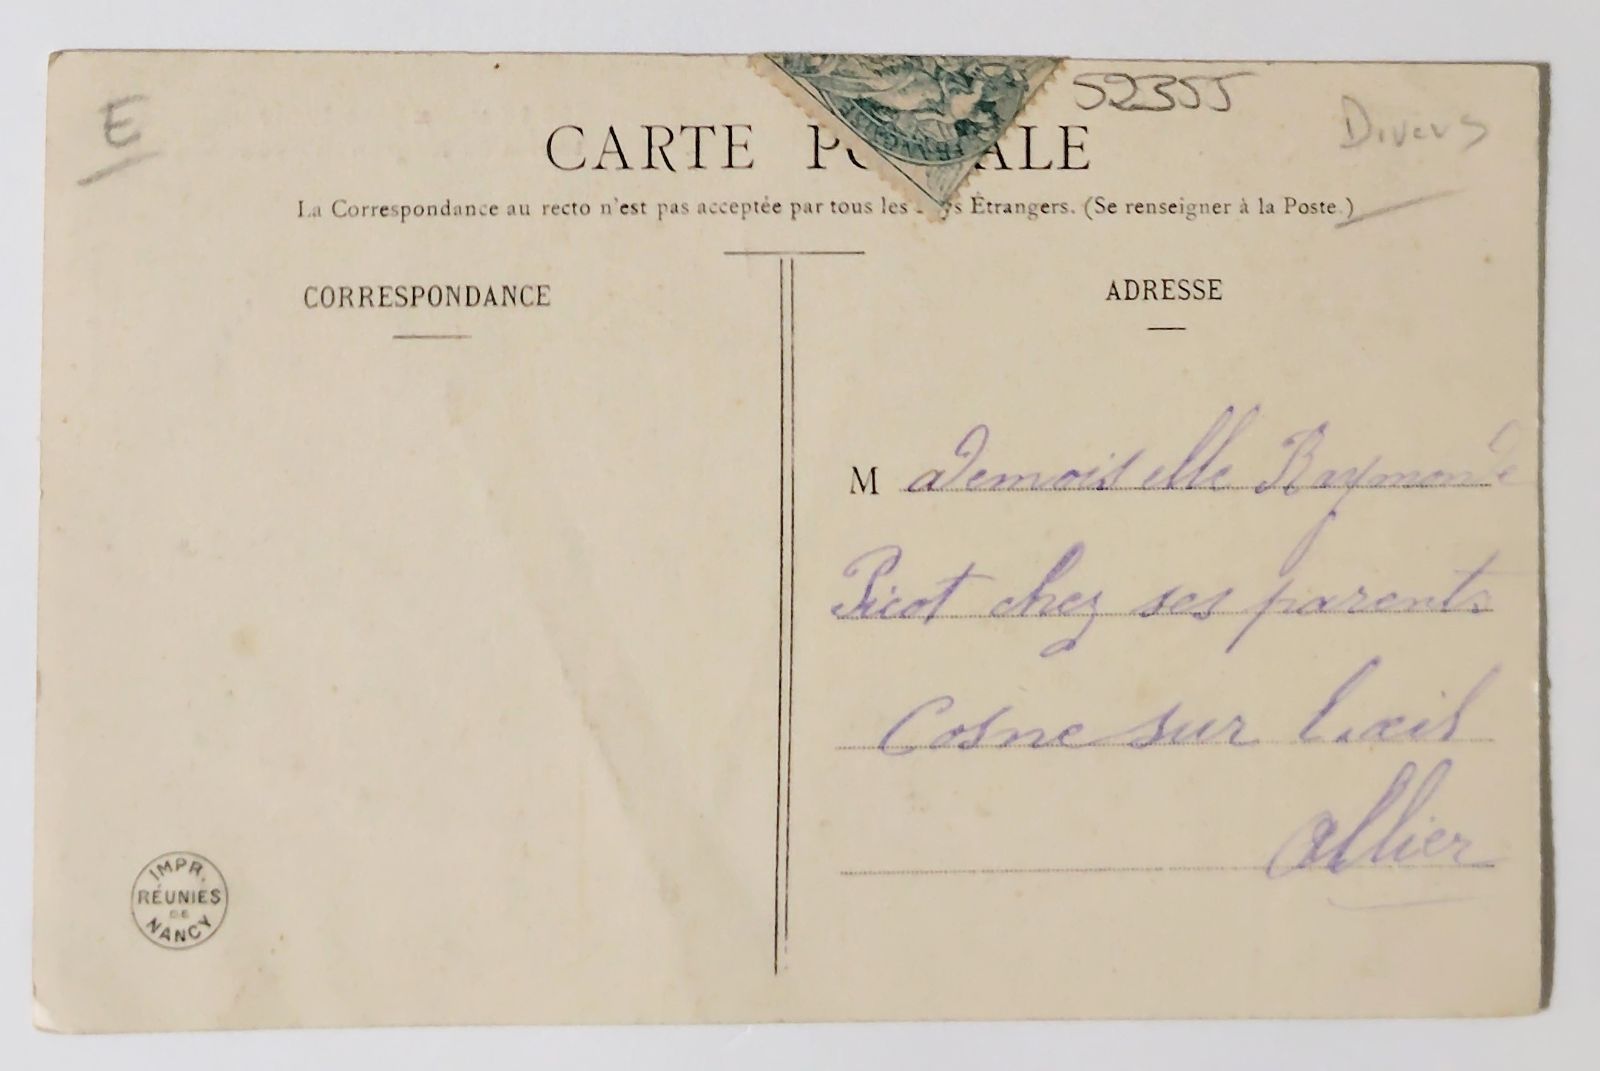 E
52355
Divers
CARTE P ALE
La Correspondance au recto n'est pas acceptée par tous les ys Étrangers. (Se renseigner à la Poste.)
CORRESPONDANCE
ADRESSE
Mademoiselle Raymonde
Picot chez ses parents
Cosne sur l'œil
Allier
IMPR.
RÉUNIES
DE
NANCY